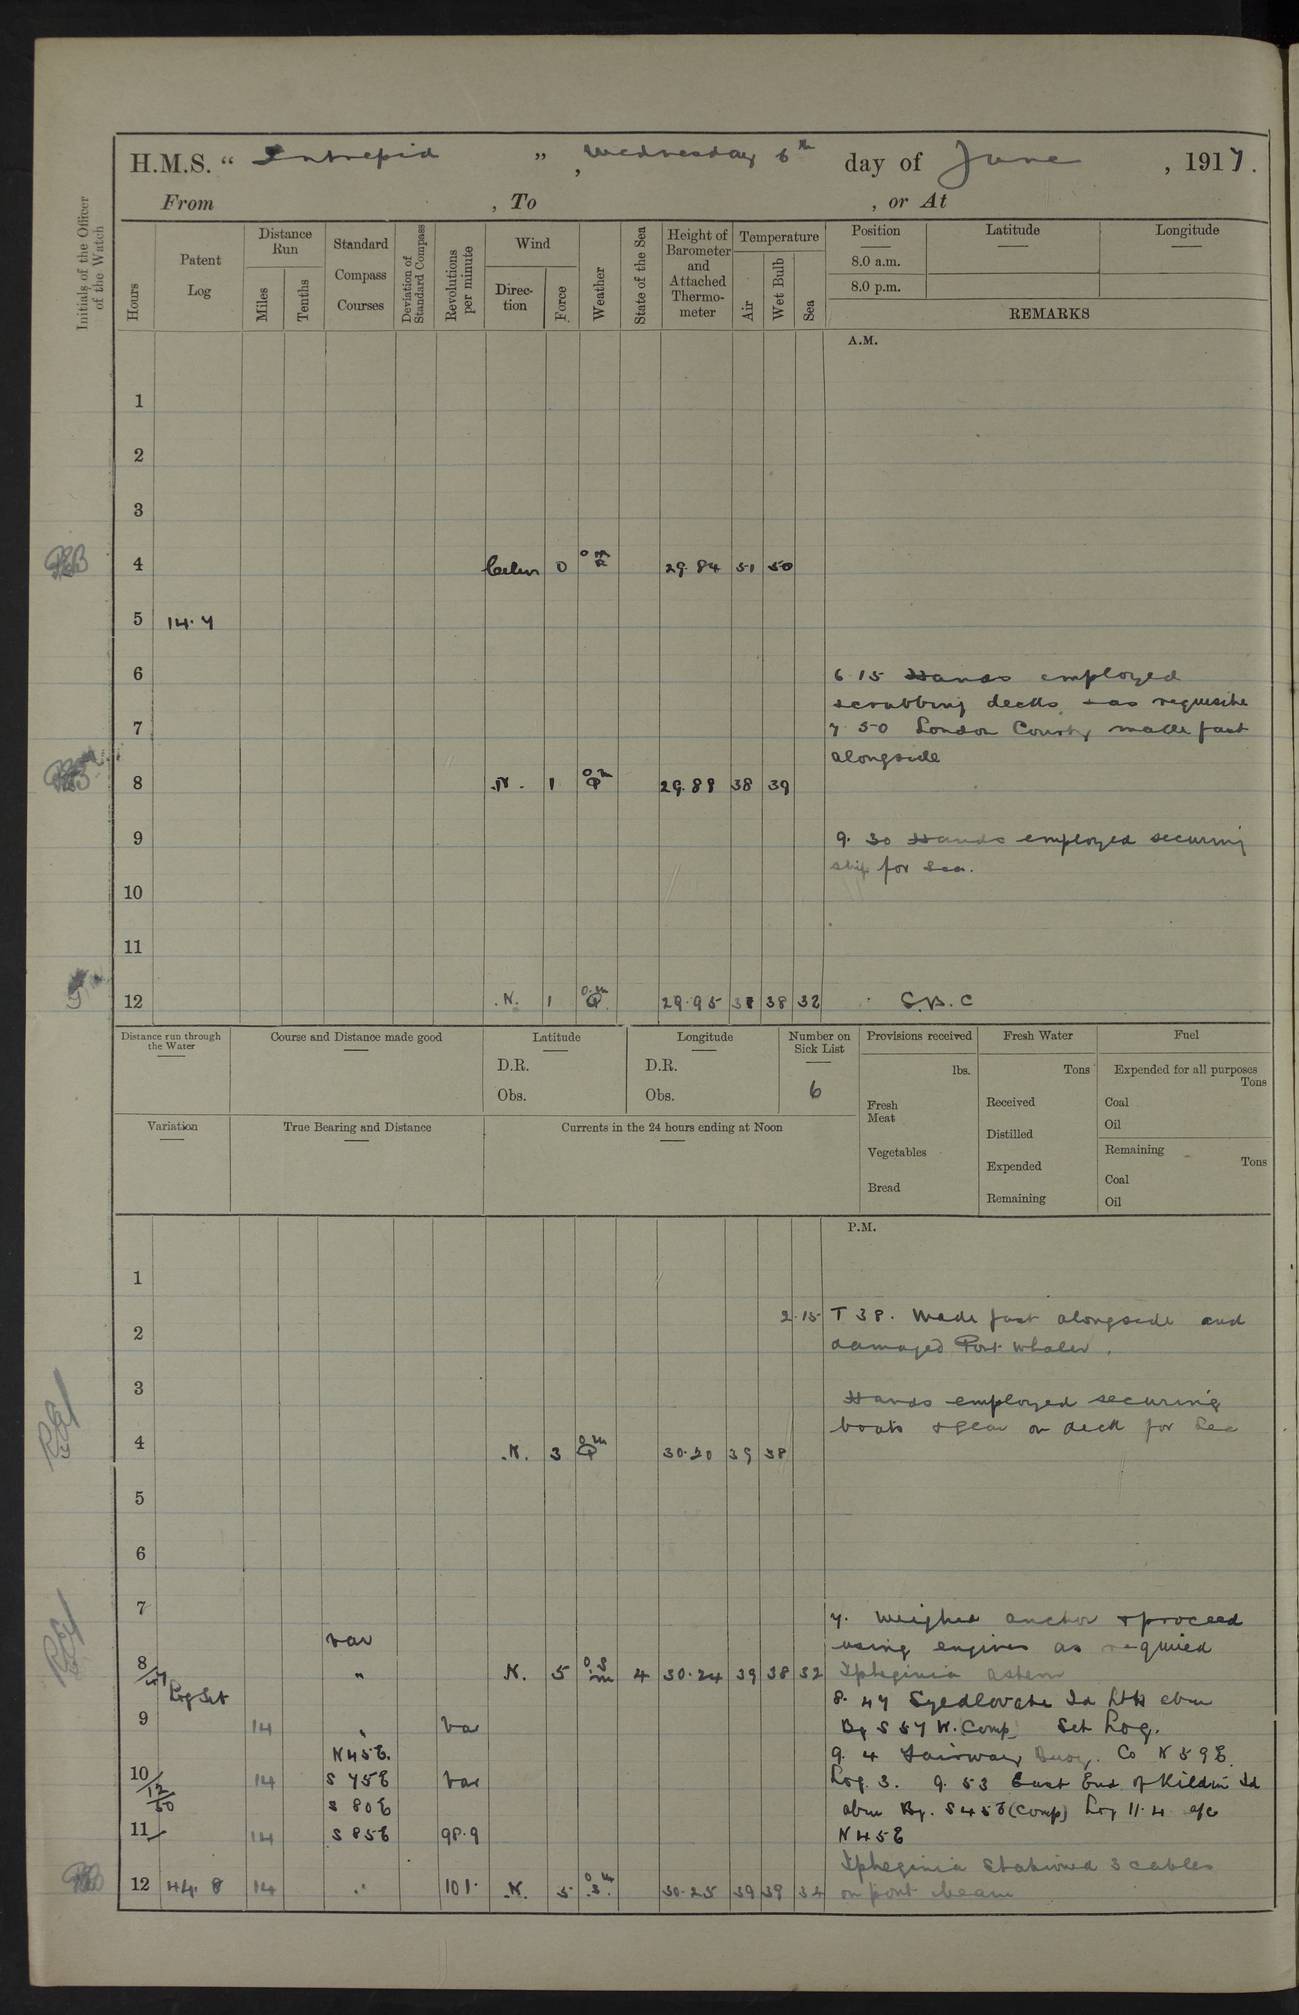 H.M.S. “ Intrepid ”, Wednesday 6th day of June , 1917.
From , To , or At
Initials of the Officer of the Watch
Hours
Patent Log
Distance Run
Miles
Tenths
Standard Compass Courses
Deviation of Standard Compass
Revolutions per minute
Wind
Direction
Force
Weather
State of the Sea
Height of Barometer and Attached Thermometer
Temperature
Air
Wet Bulb
Sea
Position
8.0 a.m.
8.0 p.m.
Latitude
Longitude
REMARKS
A.M.
1
2
3
4 Calm 0 o m 29.84 51 50
5 14.7
6 6 15 Hands employed
scrubbing decks + as requisite
7 7 50 London County made fast
alongside
8 N. 1 o m 29.88 38 39
9 9. 30 Hands employed securing
ship for sea.
10
11
12 N. 1 o.m 29.95 38 38 32 C.B.C
Distance run through the Water
Course and Distance made good
Latitude
D.R.
Obs.
Longitude
D.R.
Obs.
Number on Sick List
6
Provisions received
lbs.
Fresh Meat
Vegetables
Bread
Fresh Water
Tons
Received
Distilled
Expended
Remaining
Fuel
Expended for all purposes
Tons
Coal
Oil
Remaining
Tons
Coal
Oil
Variation
True Bearing and Distance
Currents in the 24 hours ending at Noon
P.M.
1
2.15 T 38. Made fast alongside and
2 damaged Port Whaler.
3 Hands employed securing
boats + gear on deck for Sea
4 N. 3 o m 30.20 39 38
5
6
7 7. Weighed anchor + proceed
var using engines as required
8 " N. 5 o s m 4 30.24 39 38 32 Iphiginia astern
/47 Log Set 8. 47 Syedlovate Id Lt Ho abm
9 14 " Var Bg S 57 W. Comp Set Log.
N45E. 9. 4 Fairway Buoy. Co N 59 E.
10 14 S 75E Var Log 3. 9. 53 East End of Kildin Id
12/50 S 80E abm Bg. S45E (Comp) Log 11.4 a/c
11 14 S 85E 98.9 N45E
Iphiginia Stationed 3 cables
12 44. 8 14 " 101. N. 5 30.25 39 39 34 on port beam